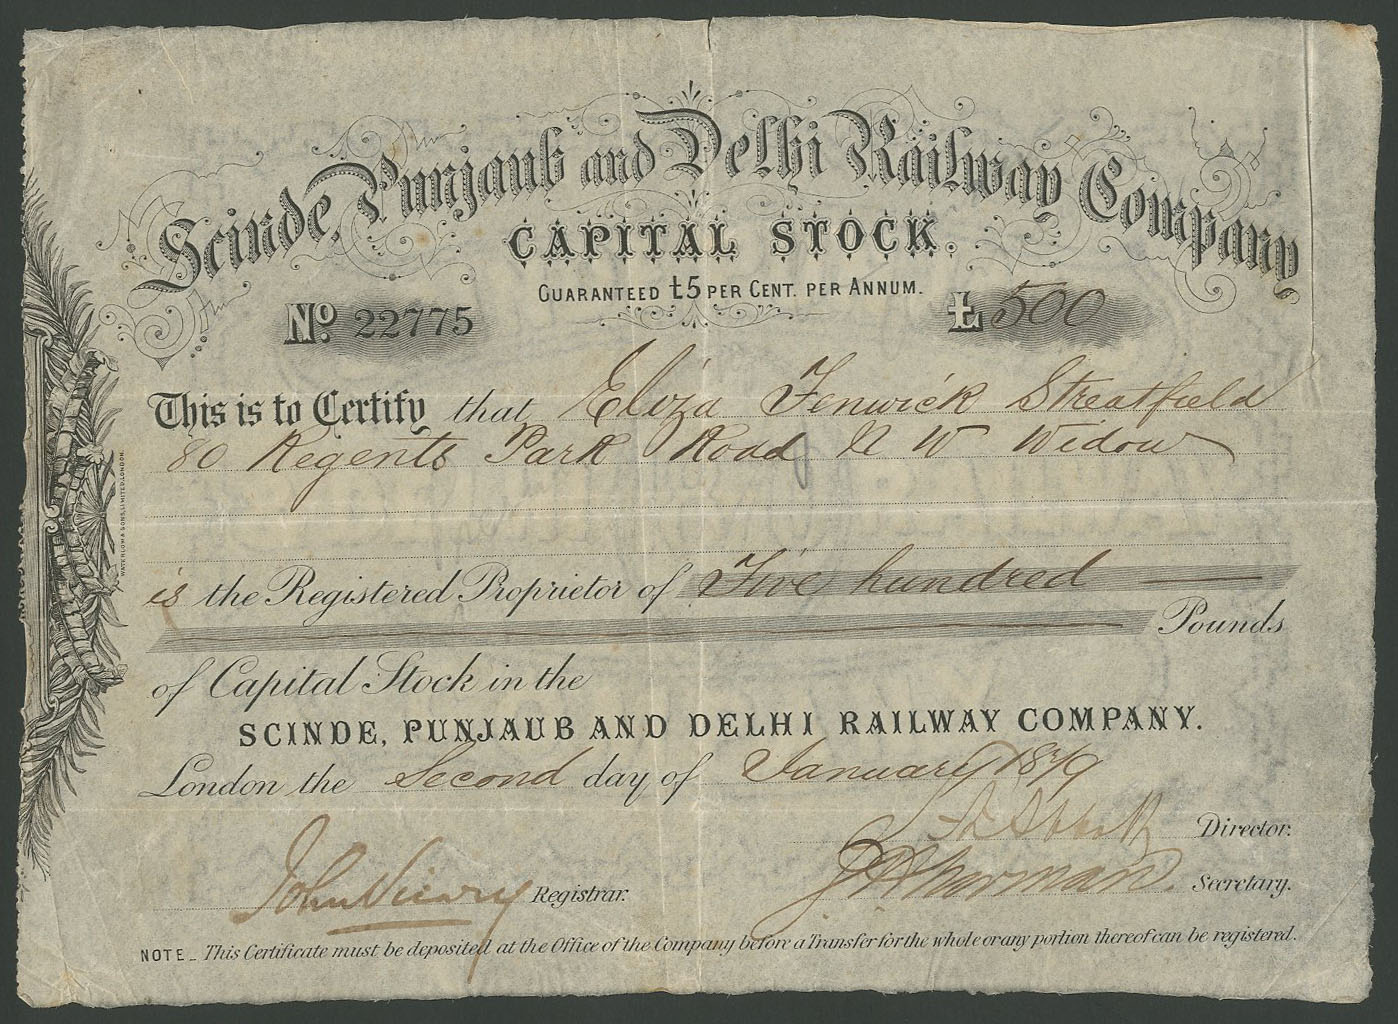 Scinde, Punjaub and Delhi Railway Company
CAPITAL STOCK.
GUARANTEED £5 PER CENT. PER ANNUM.
No 22775 £500
This is to Certify that Eliza Fenwick Streatfield
80 Regents Park Road N W Widow
is the Registered Proprietor of Five hundred
Pounds
of Capital Stock in the
SCINDE, PUNJAUB AND DELHI RAILWAY COMPANY.
London the Second day of January 1879
Director.
John Vicary Registrar. Norman Secretary.
NOTE_ This Certificate must be deposited at the Office of the Company before a Transfer for the whole or any portion thereof can be registered.
WATERLOW & SONS, LIMITED, LONDON.